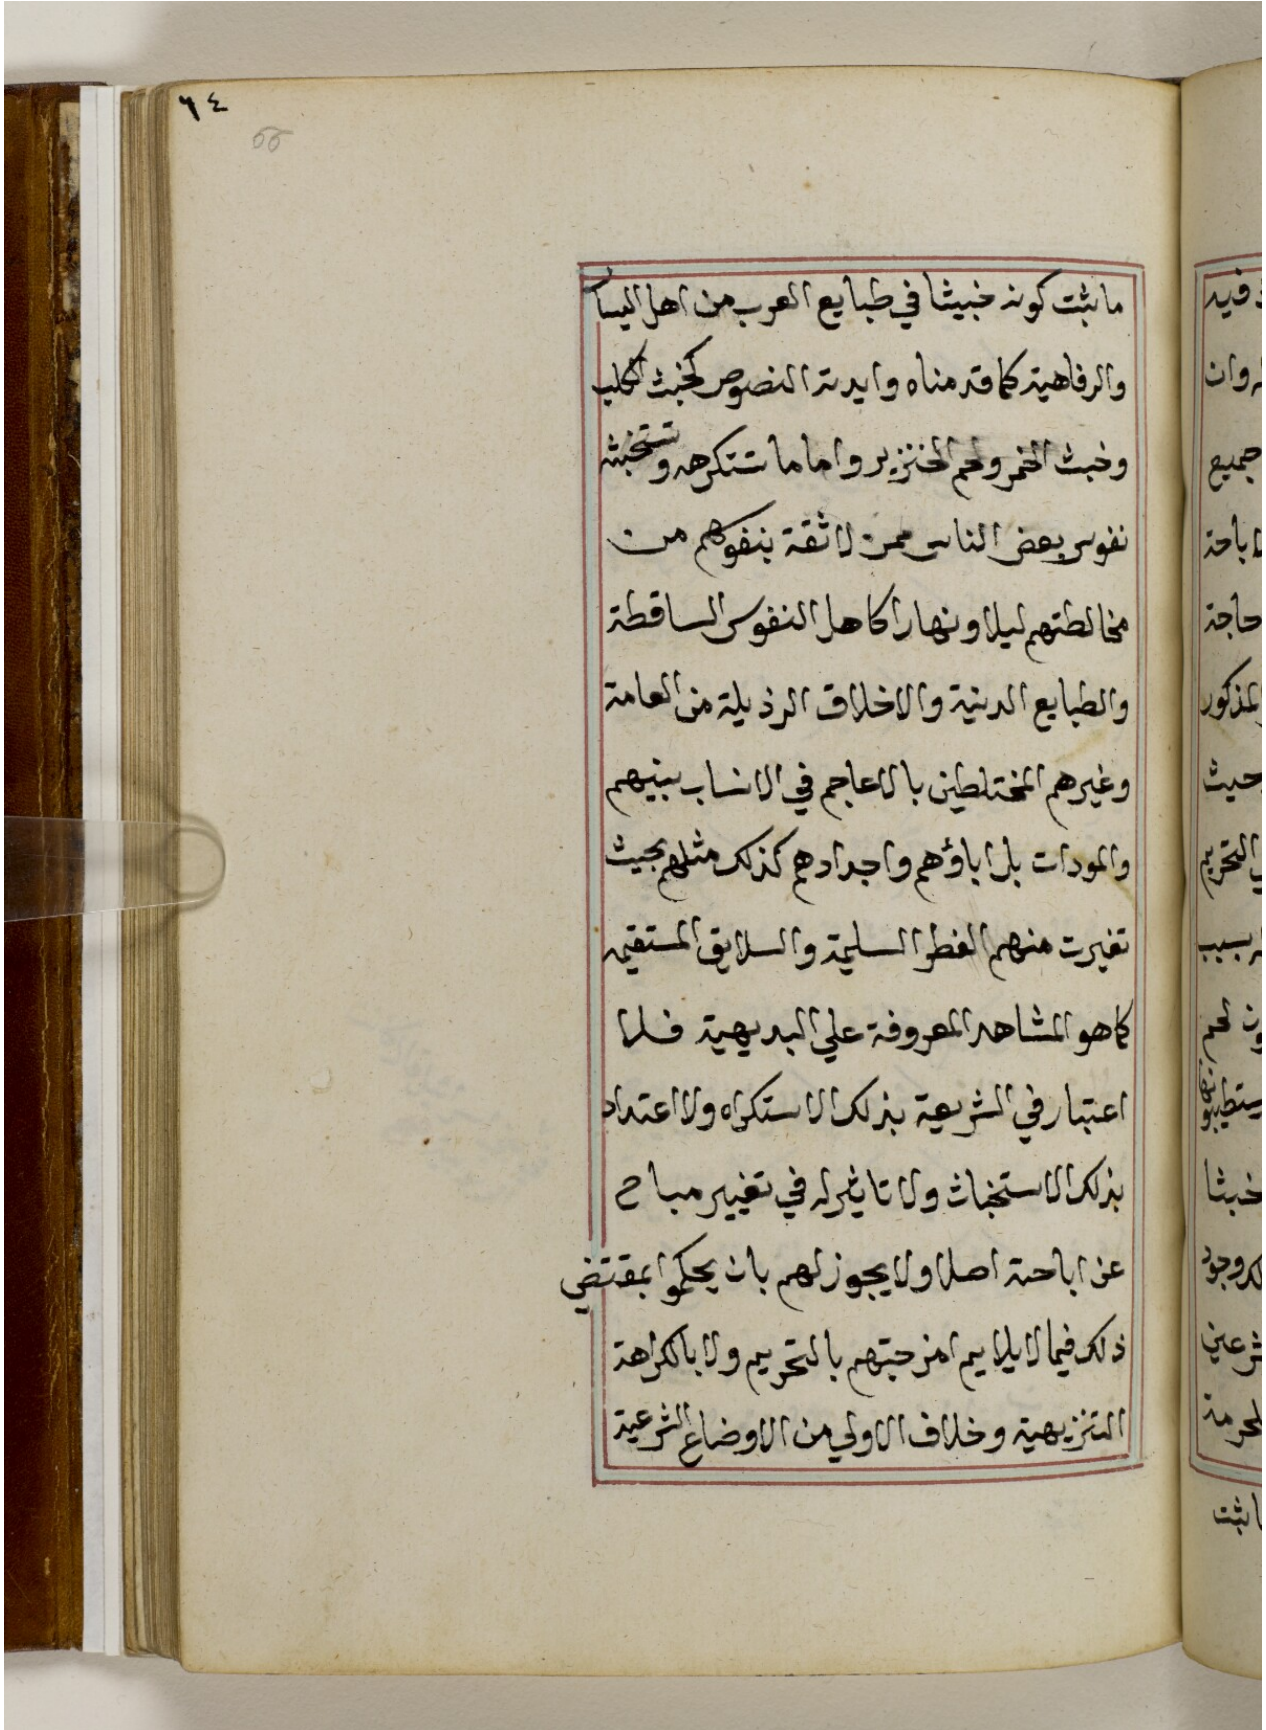 ٦٤
66
ما ثبت كونه خبيثا في طبايع العرب من اهل اليسار
والرفاهية كما قدمناه وايدته النصوص كخبث الكلب
وخبث الخمر ولحم الخنزير واما ما تستكرهه وتستخبثه
نفوس بعض الناس ممن لا ثقة بنفوسهم من
مخالطتهم ليلا ونهارا كاهل النفوس الساقطة
والطبايع الدنية والاخلاق الرذيلة من العامة
وغيرهم المختلطين بالاعاجم في الانساب بينهم
والمودات بل اباؤهم واجدادهم كذلك مثلهم بحيث
تغيرت منهم الفطر السليمة والسلايق المستقيمه
كما هو المشاهد المعروفة علي البديهية فلا
اعتبار في الشريعة بذلك الاستكراه ولا اعتداد
بذلك الاستخباث ولا تاثير له في تغيير مباح
عن اباحته اصلا ولا يجوز لهم بان يحكموا بمقتضي
ذلك فيما لا يلايم امزجتهم بالتحريم ولا بالكراهة
التنزيهية وخلاف الاولي من الاوضاع الشرعية
فيه
وان
جميع
اباحة
حاجة
المذكور
حيث
التحريم
بسبب
لحم
يستطيبونها
خبثا
وجود
شرعين
ثبت